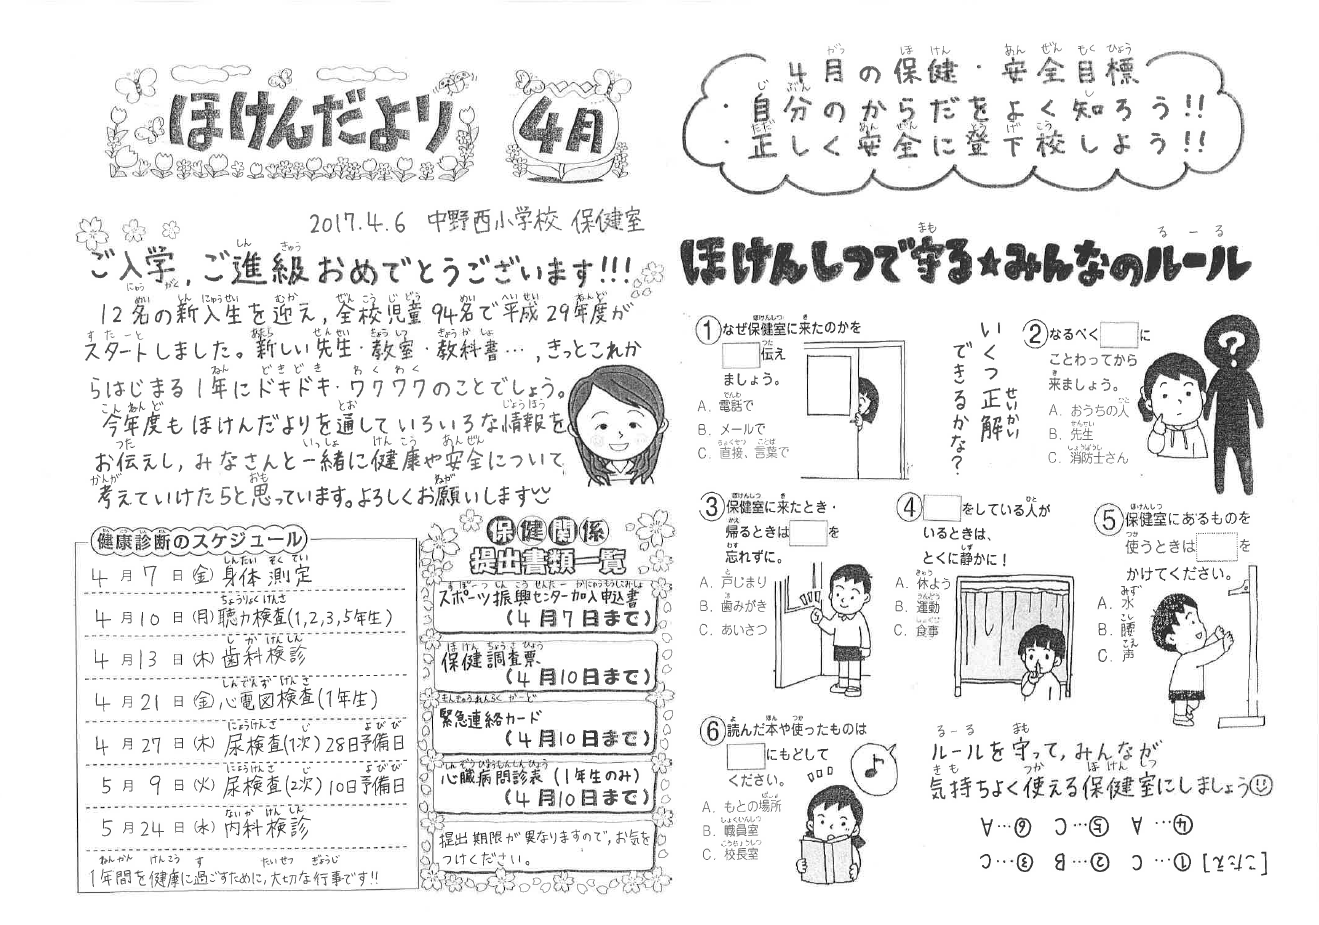 ほけんだより
4月
2017.4.6 中野西小学校 保健室
ご入学,ご進級おめでとうございます!!!
12名の新入生を迎え,全校児童94名で平成29年度が
スタートしました。新しい先生・教室・教科書…,きっとこれか
らはじまる1年にドキドキ・ワクワクのことでしょう。
今年度もほけんだよりを通していろいろな情報を
お伝えし,みなさんと一緒に健康や安全について
考えていけたらと思っています。よろしくお願いします
健康診断のスケジュール
4月7日(金)身体測定
4月10日(月)聴力検査(1,2,3,5年生)
4月13日(木)歯科検診
4月21日(金)心電図検査(1年生)
4月27日(木)尿検査(1次)28日予備日
5月9日(火)尿検査(2次)10日予備日
5月24日(水)内科検診
1年間を健康に過ごすために,大切な行事です!!
保健関係
提出書類一覧
スポーツ振興センター加入申込書
(4月7日まで)
保健調査票
(4月10日まで)
緊急連絡カード
(4月10日まで)
心臓病問診表(1年生のみ)
(4月10日まで)
提出期限が異なりますので,お気を
つけください。
4月の保健・安全目標
・自分のからだをよく知ろう!!
・正しく安全に登下校しよう!!
ほけんしつで守る★みんなのルール
いくつ正解
できるかな?
①なぜ保健室に来たのかを
伝え
ましょう。
A. 電話で
B. メールで
C. 直接、言葉で
②なるべく に
ことわってから
来ましょう。
A. おうちの人
B. 先生
C. 消防士さん
?
③保健室に来たとき・
帰るときは を
忘れずに。
A. 戸じまり
B. 歯みがき
C. あいさつ
④ をしている人が
いるときは、
とくに静かに!
A. 休よう
B. 運動
C. 食事
⑤保健室にあるものを
使うときは を
かけてください。
A. 水
B. 腰
C. 声
⑥読んだ本や使ったものは
にもどして
ください。
A. もとの場所
B. 職員室
C. 校長室
♪
ルールを守って,みんなが
気持ちよく使える保健室にしましょう
[こたえ] ①…C ②…B ③…C
④…A ⑤…C ⑥…A